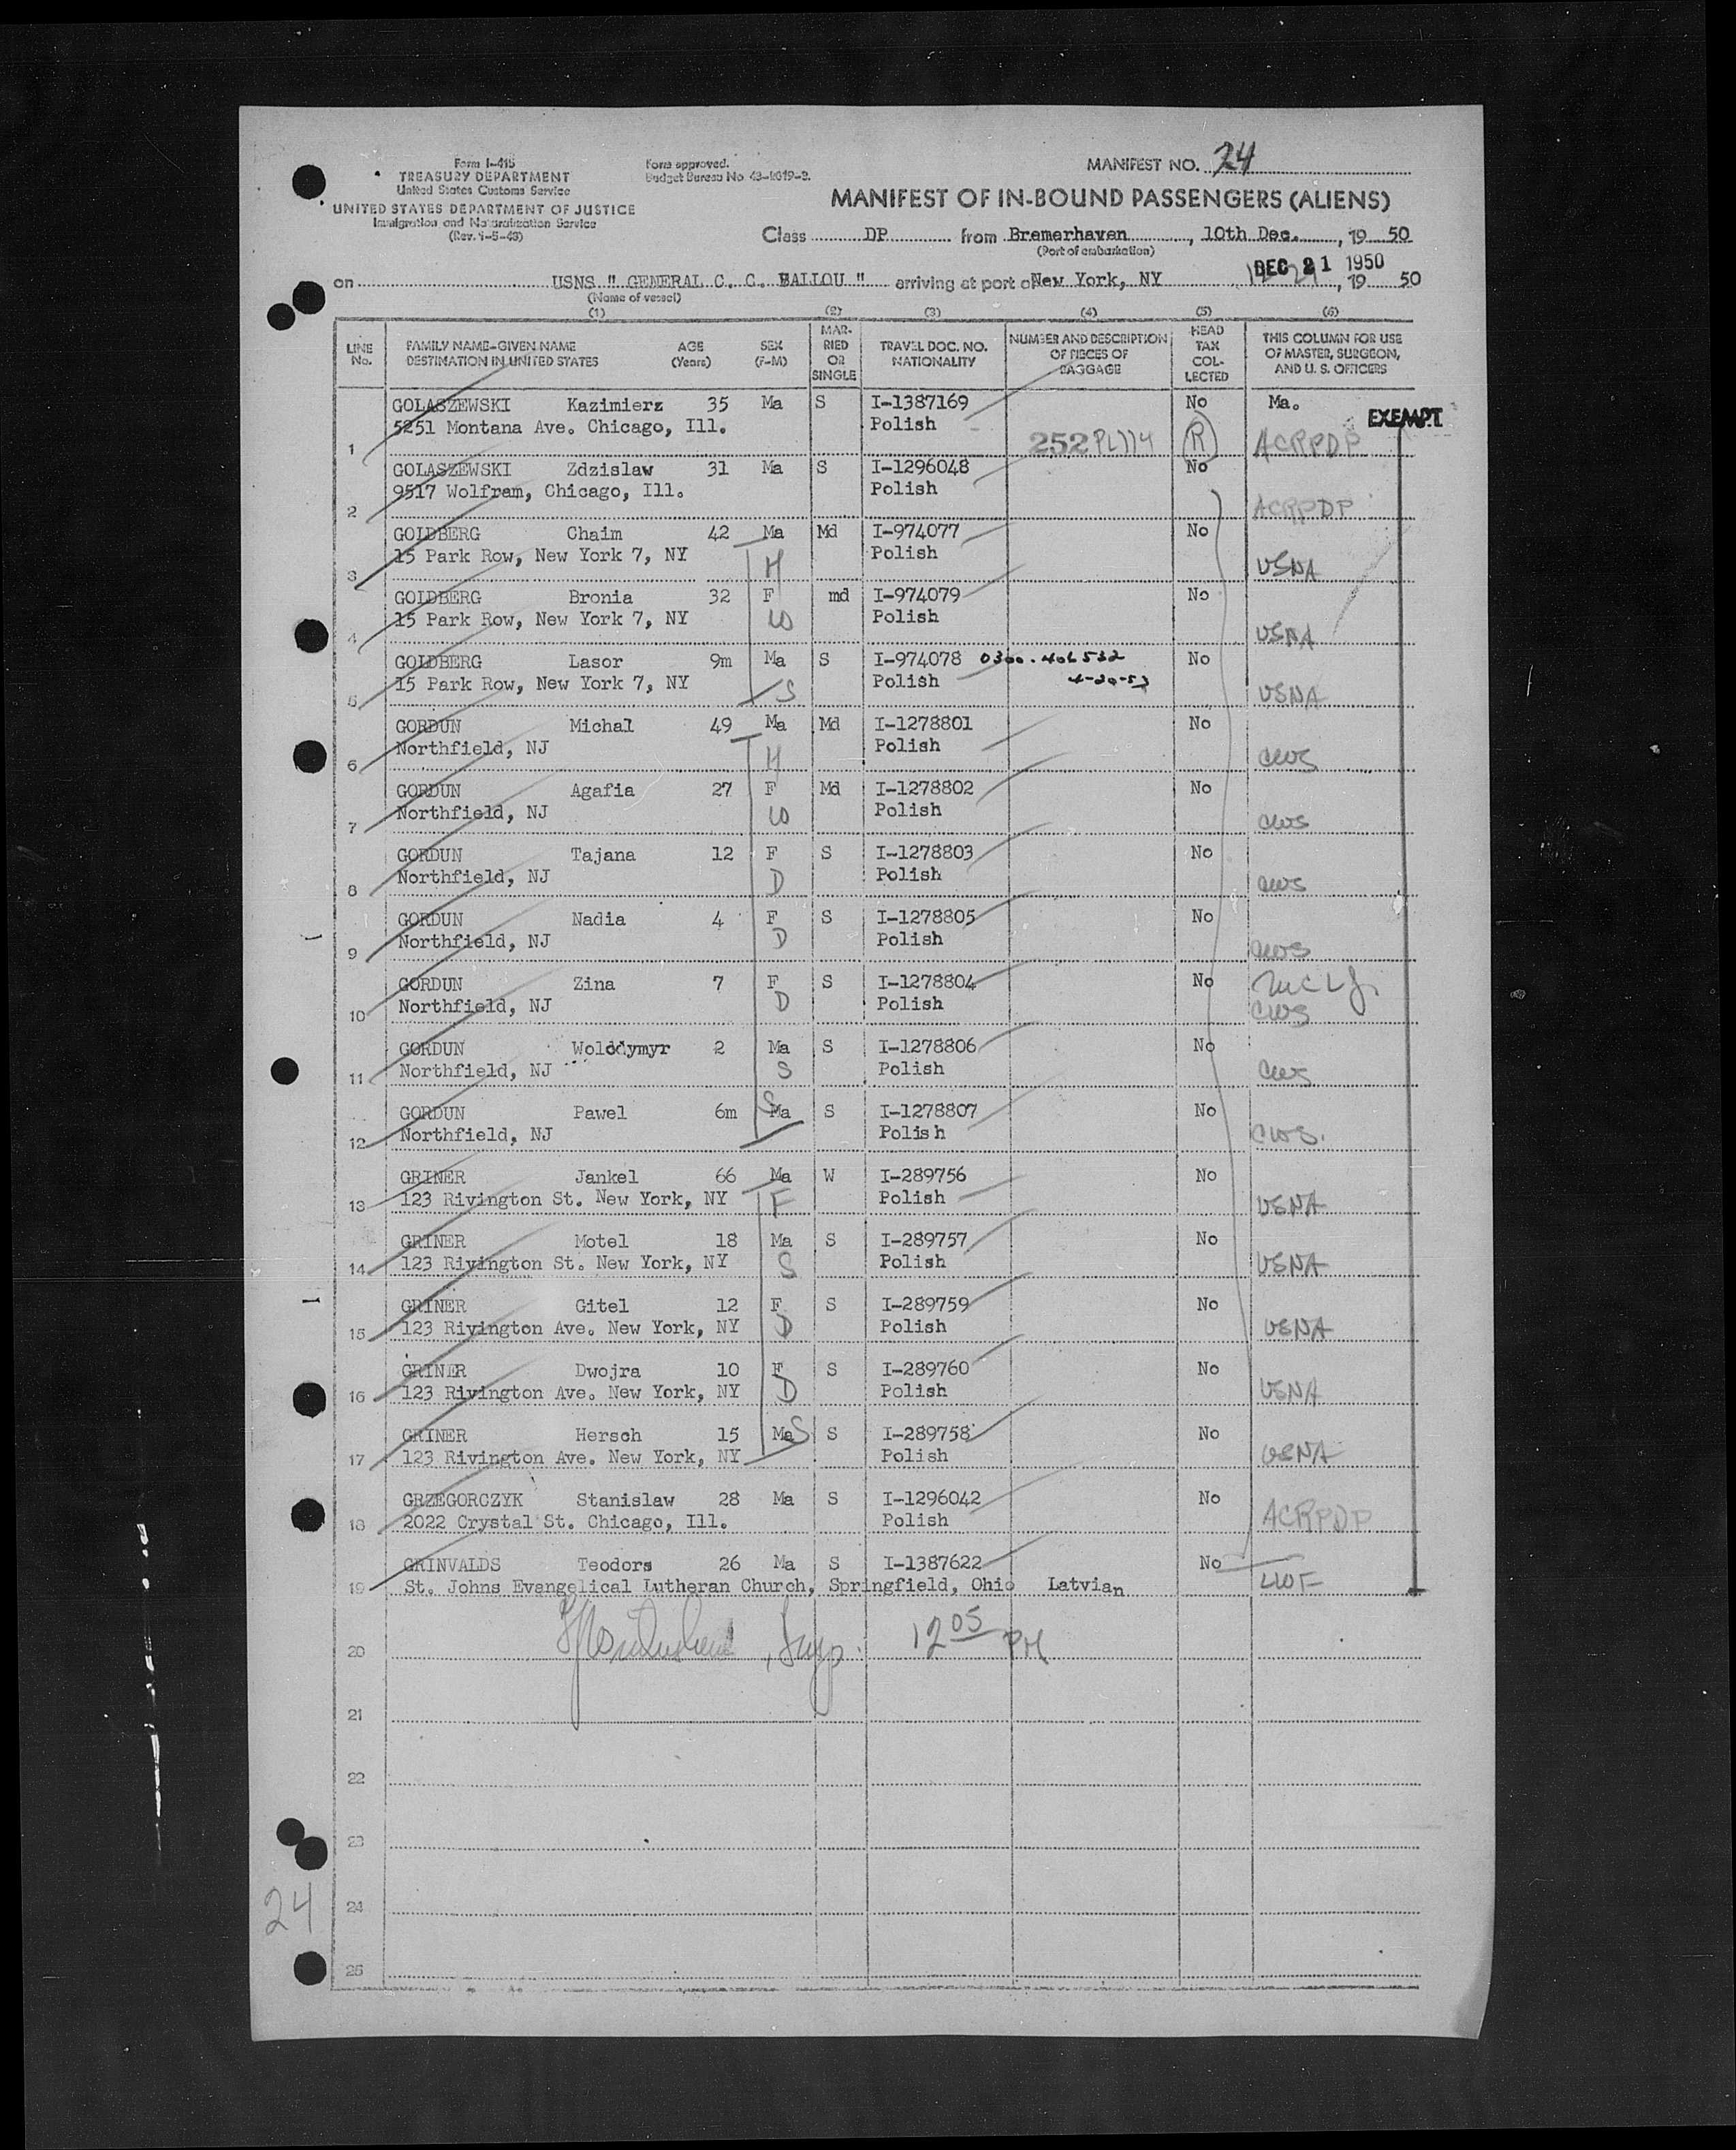 Form I-415
TREASURY DEPARTMENT
United States Customs Service
UNITED STATES DEPARTMENT OF JUSTICE
Immigration and Naturalization Service
(Rev. 1-5-48)
Form approved.
Budget Bureau No. 43-R019-2.
MANIFEST NO. 24
MANIFEST OF IN-BOUND PASSENGERS (ALIENS)
Class DP from Bremerhaven, 10th Dec., 19 50
(Port of embarkation)
on USNS " GENERAL C. C. BALLOU " arriving at port of New York, NY DEC 21 1950, 19 50
(Name of vessel)
(1) (2) (3) (4) (5) (6)
LINE No. FAMILY NAME-GIVEN NAME DESTINATION IN UNITED STATES AGE (Years) SEX (F-M) MARRIED OR SINGLE TRAVEL DOC. NO. NATIONALITY NUMBER AND DESCRIPTION OF PIECES OF BAGGAGE HEAD TAX COLLECTED THIS COLUMN FOR USE OF MASTER, SURGEON, AND U. S. OFFICERS
GOLASZEWSKI Kazimierz 35 Ma S I-1387169 No Ma. EXEMPT
1 5251 Montana Ave. Chicago, Ill. Polish 252 PL774 R ACRPDP
GOLASZEWSKI Zdzislaw 31 Ma S I-1296048 No
2 9517 Wolfram, Chicago, Ill. Polish ACRPDP
GOLDBERG Chaim 42 Ma Md I-974077 No
3 15 Park Row, New York 7, NY H Polish USNA
GOLDBERG Bronia 32 F md I-974079 No
4 15 Park Row, New York 7, NY W Polish USNA
GOLDBERG Lasor 9m Ma S I-974078 0300.406532 No
5 15 Park Row, New York 7, NY S Polish 4-20-53 USNA
GORDUN Michal 49 Ma Md I-1278801 No
6 Northfield, NJ H Polish CWS
GORDUN Agafia 27 F Md I-1278802 No
7 Northfield, NJ W Polish CWS
GORDUN Tajana 12 F S I-1278803 No
8 Northfield, NJ D Polish CWS
GORDUN Nadia 4 F S I-1278805 No
9 Northfield, NJ D Polish CWS
GORDUN Zina 7 F S I-1278804 No
10 Northfield, NJ D Polish CWS
GORDUN Wolodymyr 2 Ma S I-1278806 No
11 Northfield, NJ S Polish CWS
GORDUN Pawel 6m S Ma S I-1278807 No
12 Northfield, NJ Polish CWS.
GRINER Jankel 66 Ma W I-289756 No
13 123 Rivington St. New York, NY F Polish USNA
GRINER Motel 18 Ma S I-289757 No
14 123 Rivington St. New York, NY S Polish USNA
GRINER Gitel 12 F S I-289759 No
15 123 Rivington Ave. New York, NY D Polish USNA
GRINER Dwojra 10 F S I-289760 No
16 123 Rivington Ave. New York, NY D Polish USNA
GRINER Hersch 15 Ma S S I-289758 No
17 123 Rivington Ave. New York, NY Polish USNA
GRZEGORCZYK Stanislaw 28 Ma S I-1296042 No
18 2022 Crystal St. Chicago, Ill. Polish ACRPDP
GRINVALDS Teodors 26 Ma S I-1387622 No
19 St. Johns Evangelical Lutheran Church, Springfield, Ohio Latvian LWF
20 12 05 PM
21
22
23
24
24
25